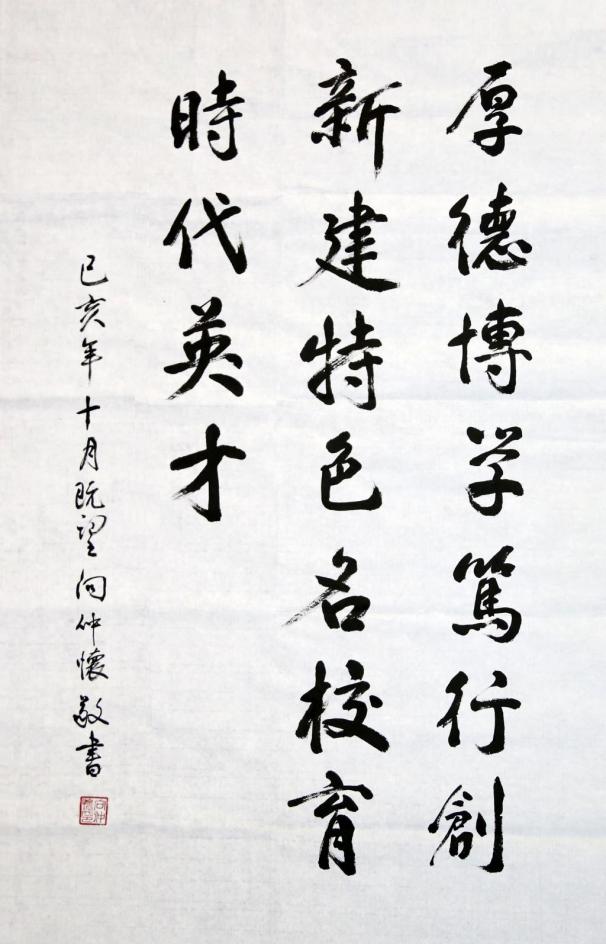 厚德博学篤行創
新建特色名校育
時代英才
己亥年十月既望向仲懷敬書